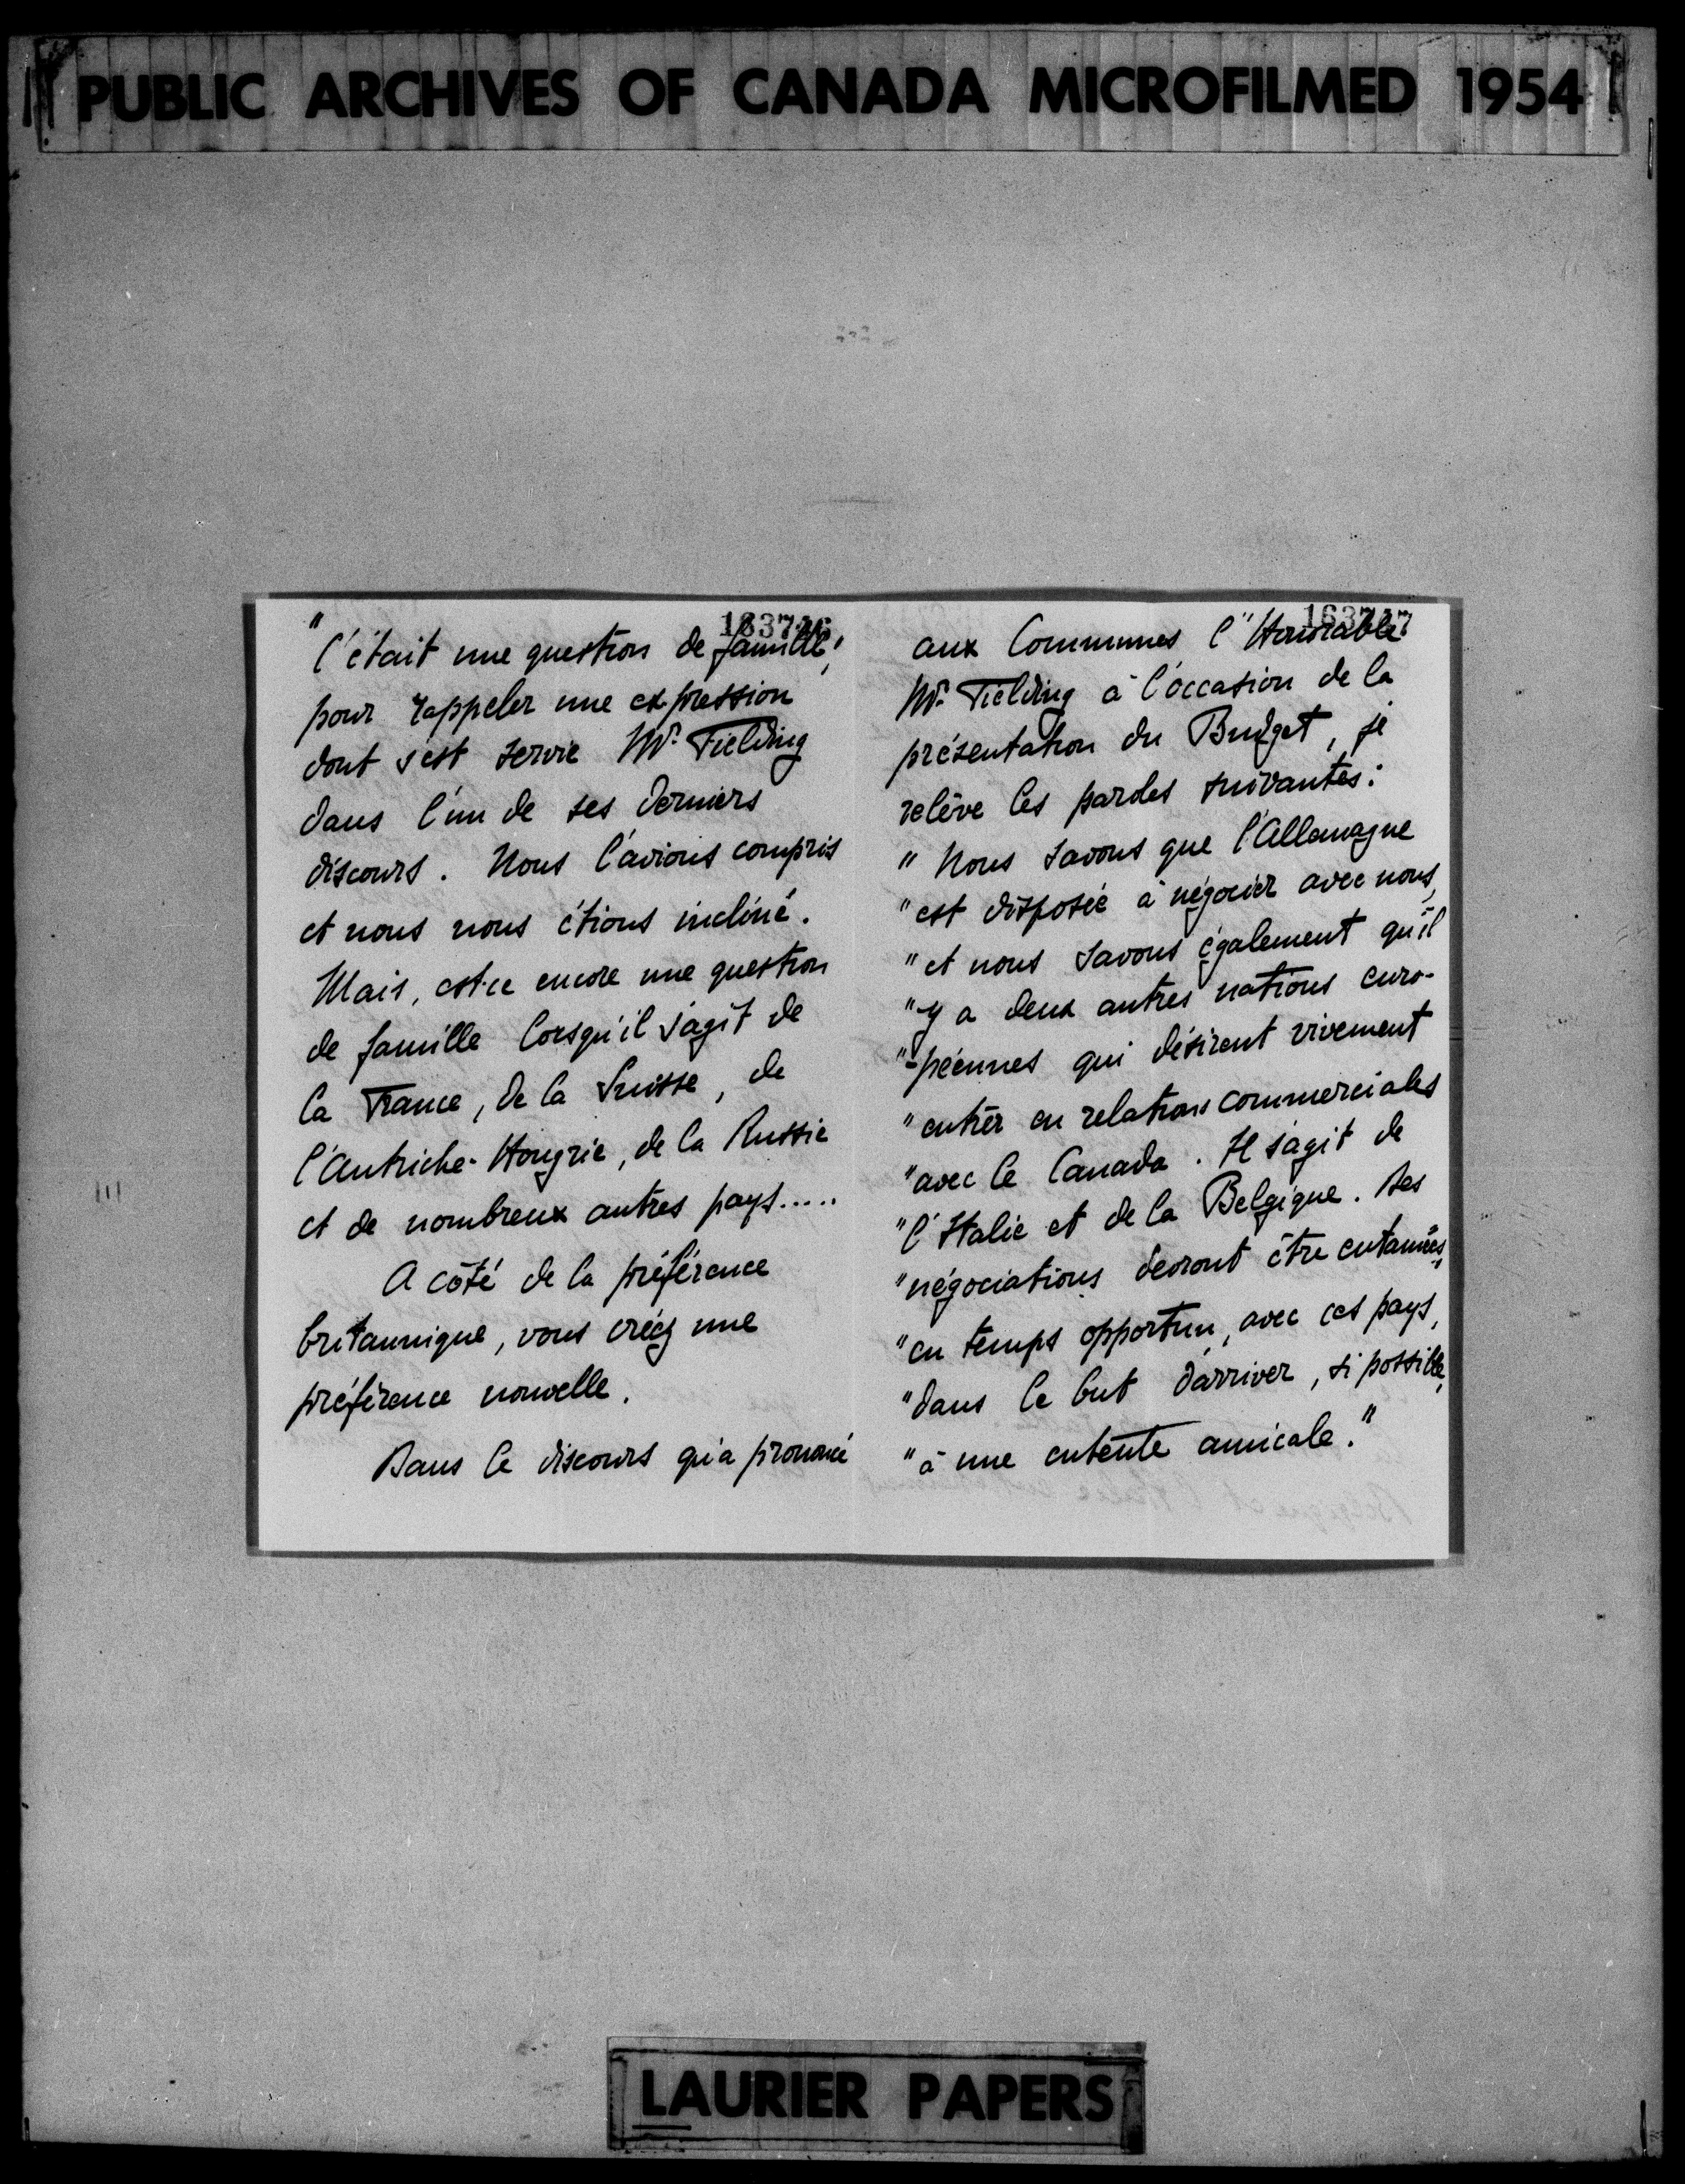 PUBLIC ARCHIVES OF CANADA MICROFILMED 1954
"C'était une question de famille",
pour rappeler une expression
dont s'est servie Mr. Fielding
dans l'un de ses derniers
discours. Nous l'avions compris
et nous nous étions incliné.
Mais, est-ce encore une question
de famille lorsqu'il s'agit de
la France, de la Suisse, de
l'Autriche-Hongrie, de la Russie
et de nombreux autres pays.....
A côté de la préférence
britannique, vous créez une
préférence nouvelle.
Dans le discours qu'a prononcé
163747
aux Communes l'"Honorable"
Mr. Fielding à l'occasion de la
présentation du Budget, je
relève les paroles suivantes:
"Nous savons que l'Allemagne
"est disposée à négocier avec nous,
"et nous savons également qu'il
"y a deux autres nations euro-
"-péennes qui désirent vivement
"entrer en relations commerciales
"avec le Canada. Il s'agit de
"l'Italie et de la Belgique. Des
"négociations devront être entamées,
"en temps opportun, avec ces pays,
"dans le but d'arriver, si possible,
"à une entente amicale."
LAURIER PAPERS